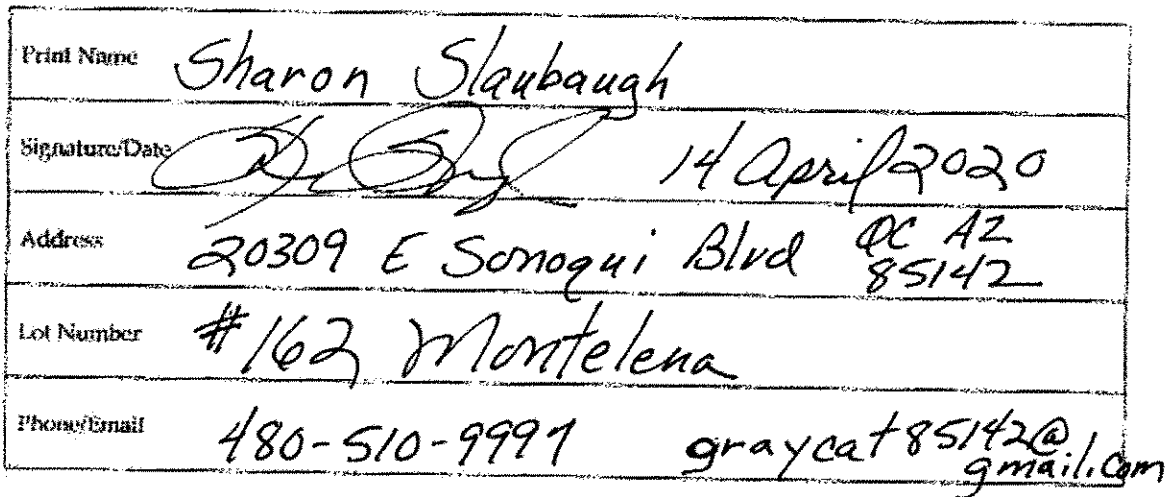 Print Name Sharon Slaubaugh
Signature/Date 14 April 2020
Address 20309 E Sonoqui Blvd QC AZ
85142
Lot Number #162 Montelena
Phone/Email 480-510-9997 graycat85142@
gmail.com